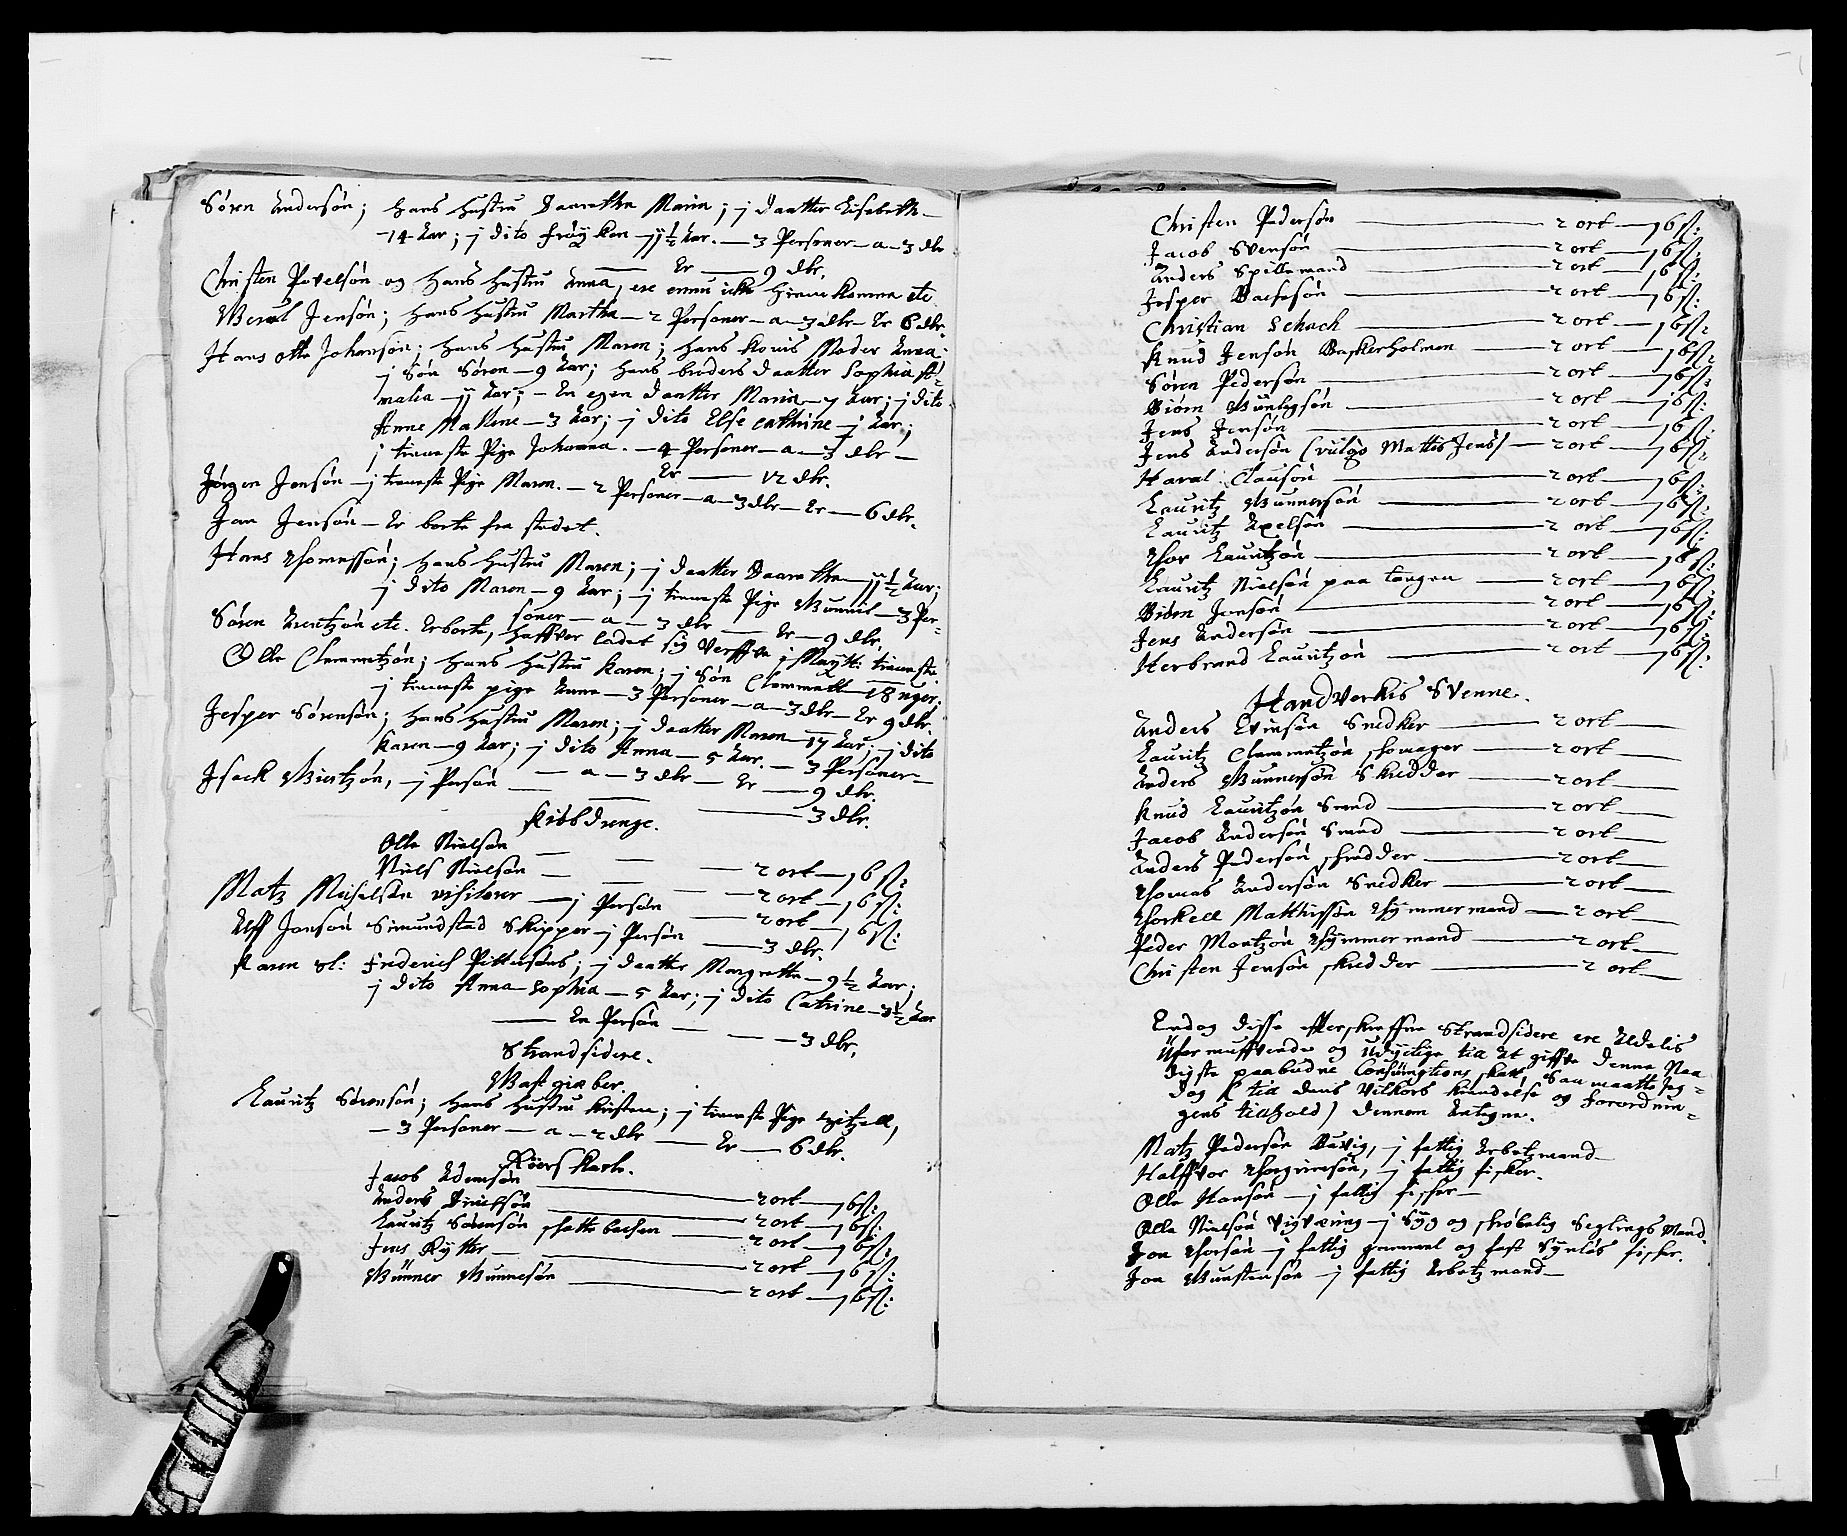 Søren Andersøn; Hans Hustru Daarethe Maria; j daatter Lisebeth
14 Aar; j dito frøyken jj½ Aar. — 3 Personer — a — 3 dlr
— Er — 9 dlr.
Christen Povelsøn og Hans Hustru Anna, ere ennu icke komne etc
Jensøn; Hans Hustru Martha — 2 Personer — a — 3 dlr — Er 6 dlr.
Hans otte Johansøn; Hans Hustru Maren; Hans Moder Anna
j Søn Søren — 9 Aar; Hans broders daatter Sophia A-
malia — jj Aar; — En egen daatter Maria — 7 Aar; j dito
Anne Malene — 3 Aar; j dito Else Cathrine — j Aar;
j tieneste Pige Johanna. — 4 Personer — a — 3 dlr —
Er — 12 dlr.
Jørgen Jensøn — j tieneste Pige Maren. — 2 Personer — a — 3 dlr — Er — 6 dlr.
Jan Jensøn — Er borte fra stedet.
Hans Thomessøn; Hans Hustru Maren; j daatter Daarethe — jj½ Aar;
j dito Maren — 9 Aar; j tieneste Pige Gunnild — 3 Per-
soner — a — 3 dlr — Er — 9 dlr.
Søren Lauritzøn etc. Er borte, haffver ladet sig verffve j Maytt: tieneste
Olle Clemmetzøn; Hans Hustru Karen; j Søn Clemmett — 18 uger;
j tieneste pige Anna — 3 Personer — a — 3 dlr — Er 9 dlr.
Jesper Sørensøn; Hans Hustru Maren; j daatter Maren — 17 Aar; j dito
Karen — 9 Aar; j dito Anna — 5 Aar. — 3 Personer
— a — 3 dlr — Er — 9 dlr.
Isack Giertzøn, j Persøn — 3 dlr.
Skibsdrenge.
Olle Nielsøn — 2 ort — 16 ß:
Niels Nielsøn — 2 ort — 16 ß:
2 ort — 16 ß:
Matz Michelsøn visiterer — j Persøn — 3 dlr.
Ulff Jensøn Simundstad Skipper — j Persøn
Karen Sl: Friderich Pittersøns; j daatter Margrethe — 9½ Aar;
j dito Anna Sophia — 5 Aar; j dito Catrine — 3½ Aar
— En Persøn — 3 dlr.
Strandsidere.
Gastgieber.
Lauritz Sørensøn; Hans Hustru Kirsten; j tieneste Pige Sitzell,
— 3 Personer — a — 2 dlr — Er — 6 dlr.
Røerskarle.
Jacob Adamsøn — 2 ort — 16 ß:
Anders Dirichsøn — 2 ort — 16 ß:
Lauritz Sørensøn — 2 ort — 16 ß:
Jens Rytter — 2 ort — 16 ß:
Gunner Gunnesøn — 2 ort — 16 ß:
Christen Pedersøn — 2 ort — 16 ß:
Jacob Svensøn — 2 ort — 16 ß:
Anders Spillemand — 2 ort — 16 ß:
Jesper — 2 ort — 16 ß:
Christian Schach — 2 ort — 16 ß:
Knud Jensøn Baskerholmen — 2 ort — 16 ß:
Søren Pedersøn — 2 ort — 16 ß:
Biørn Gunlogsøn — 2 ort — 16 ß:
Jens Jensøn — 2 ort — 16 ß:
Jens Andersøn (vulgo Mattis Jens) — 2 ort — 16 ß:
Haral: Clausøn — 2 ort — 16 ß:
Lauritz Gunnersøn — 2 ort — 16 ß:
Lauritz Axelsøn — 2 ort — 16 ß:
Thor Lauritzøn — 2 ort — 16 ß:
Lauritz Nielsøn paa tangen — 2 ort — 16 ß:
Biørn Jensøn — 2 ort — 16 ß:
Jens Andersøn — 2 ort — 16 ß:
Herbrand Lauritzøn — 2 ort — 16 ß:
Handverkis Svenne.
Anders Evinsøn Snedker — 2 ort —
Lauritz Clemmetzøn skomager — 2 ort —
Anders Gunnersøn Skredder — 2 ort —
Knud Lauritzøn Smed — 2 ort —
Jacob Andersøn Smed — 2 ort —
Anders Pedersøn skredder — 2 ort —
Thomas Andersøn Snedker — 2 ort —
Thorkell Mathissøn Tymmermand — 2 ort —
Peder Montzøn Tymmermand — 2 ort —
Christen Jensøn skredder — 2 ort —
Endog disse efterskreffne Strandsidere ere Aldelis
Uformuffvende og Udyctige til at giffve denne Naa-
digste paabudne Consumptions skatt, Saa maatte Jeg
dog (til deris Vilkors kundelse og forordnin-
gens tilhold) dennem Antegne.
Matz Pedersøn Buvig, j fattig Arbetzmand
Halffvor Thorgrimsøn, j fattig fisker.
Olle Hansøn — j fattig fisker —
Olle Nielsøn Vigværing — j Syg og skrøbelig Seglings Mand.
Jon Thorsøn — j fattig gammel og fast Synløs fisker.
Jon Gunstensøn — j fattig Arbetzmand —